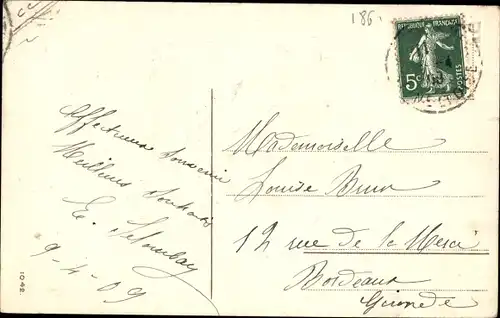 186
RÉPUBLIQUE FRANÇAISE
5c
POSTES
Affectueux Souvenir
Meilleurs Souhaits
E.
9-4-09
1042
Mademoiselle
Louise Brun
12 rue de la Merci
Bordeaux
Gironde